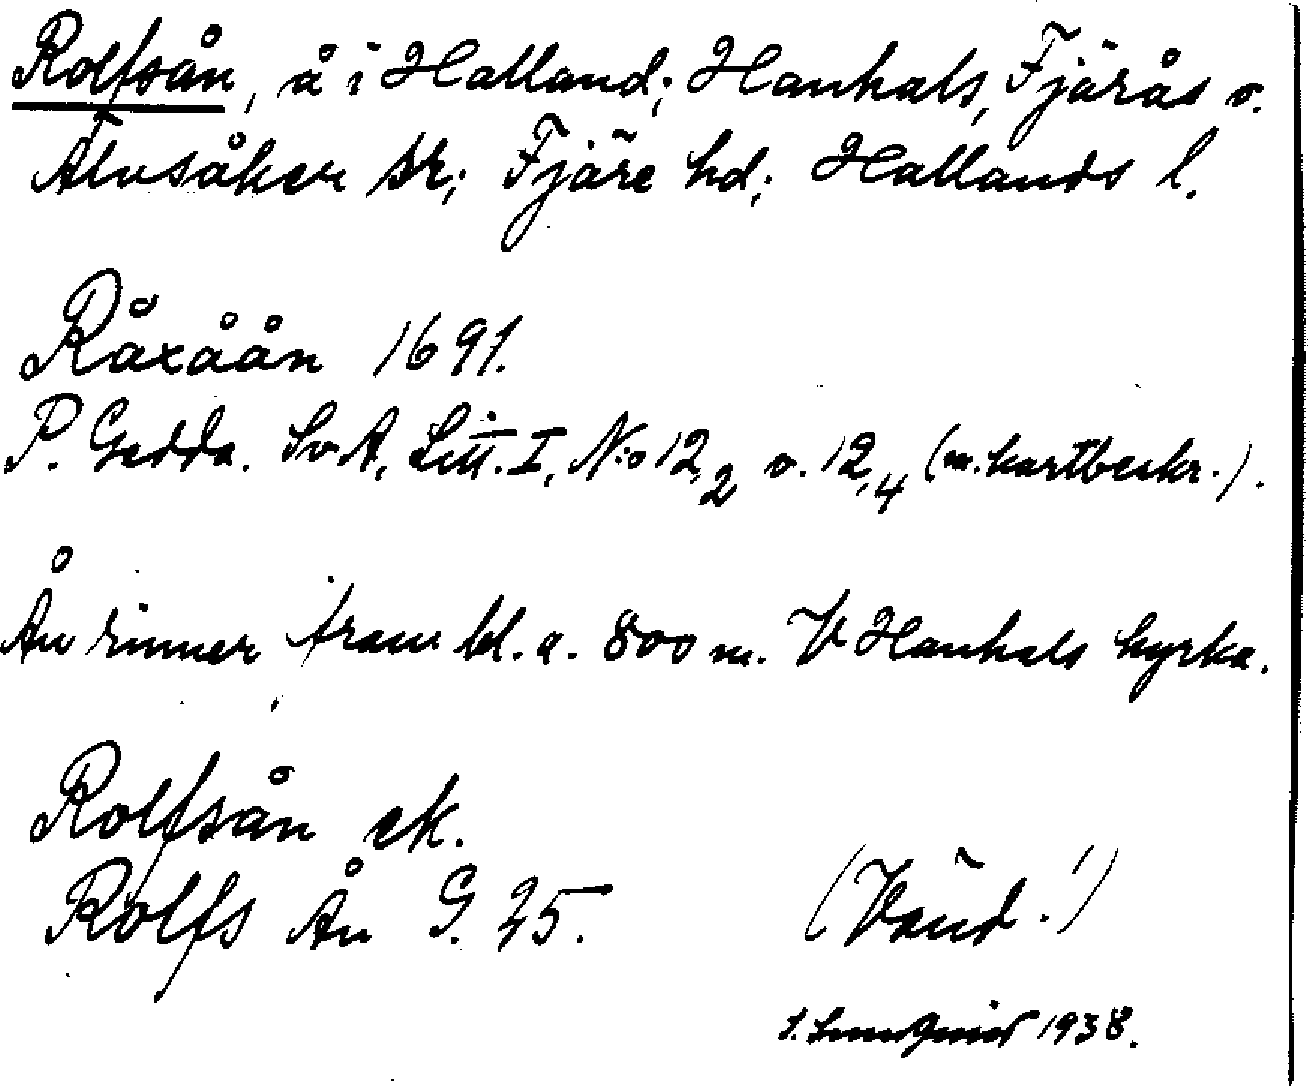 Rolfsån, å i Halland; Hanhals, Fjärås o.
Älvsåker sr; Fjäre hd; Hallands l.
Råxåån 1691.
P. Gedda. SvA, Litt. I, N:o 12,2 o. 12,4 (m. kartbeskr.).
Ån rinner fram bl.a. 800 m. V Hanhals kyrka.
Rolfsån ek.
Rolfs Ån G. 35.
(Vänd!)
1938.